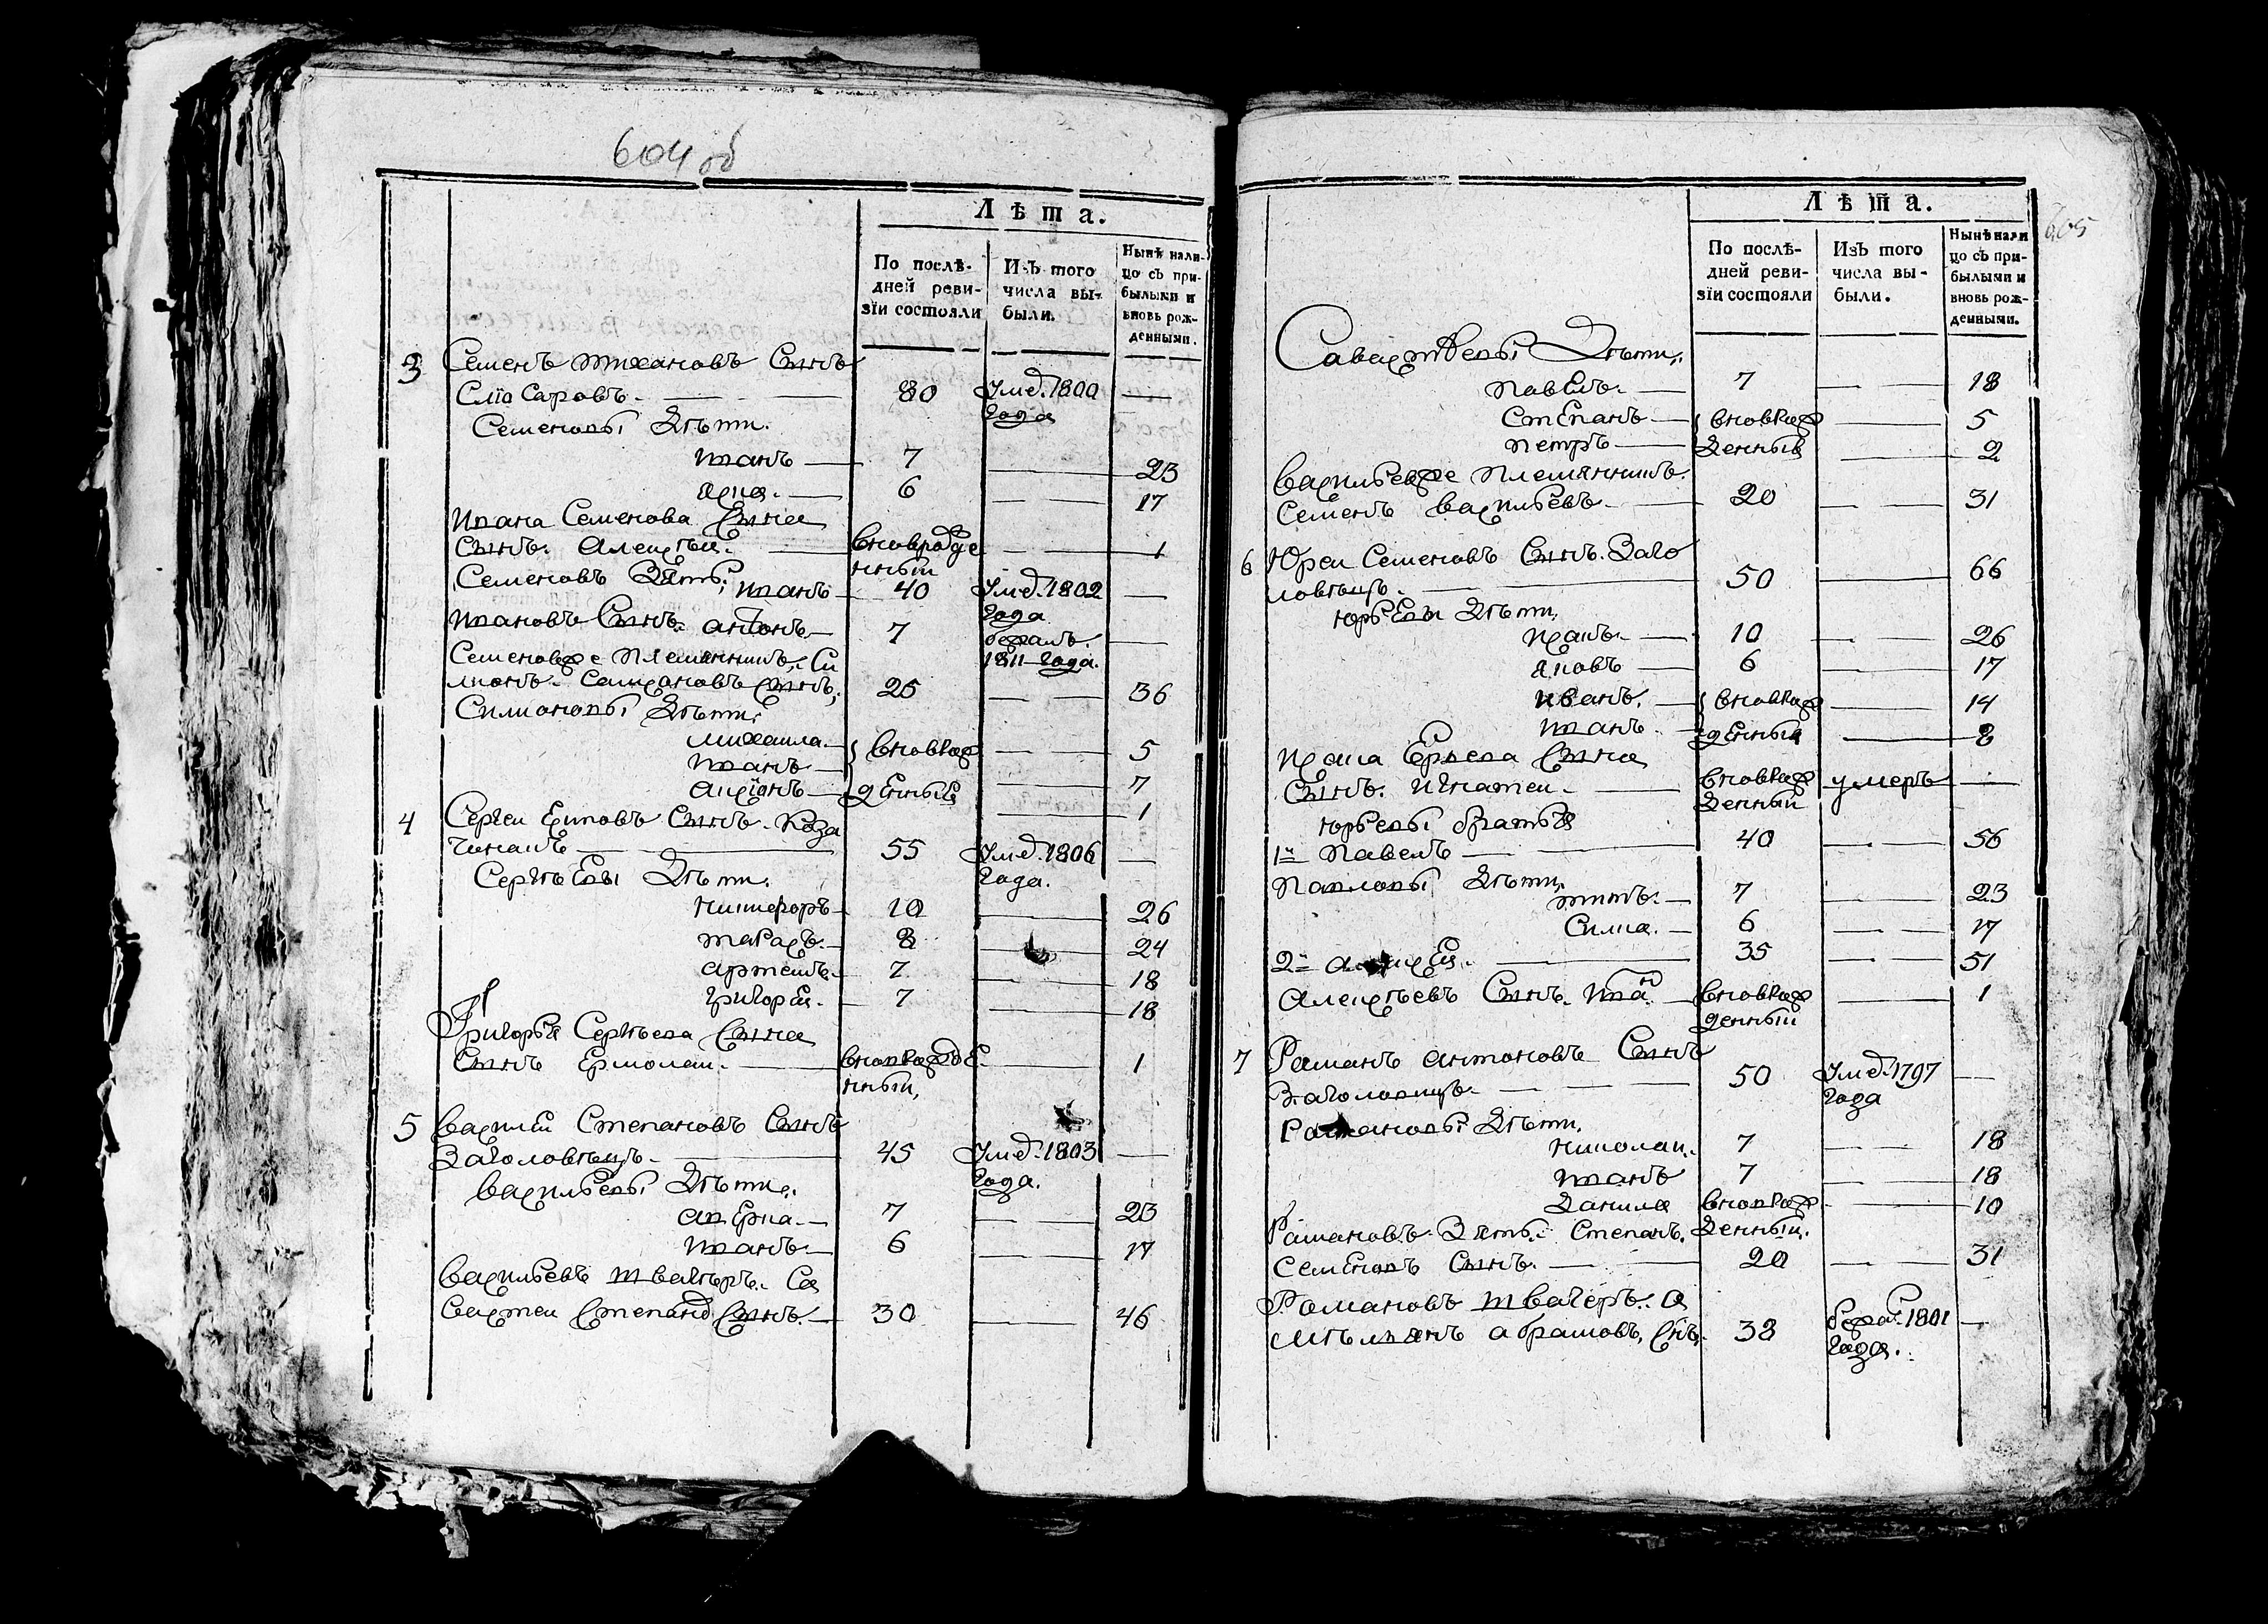 604 об
Лѣта.
По послѣ-
дней реви-
зіи состояли
Изъ того
числа вы-
были.
Нынѣ нали-
цо съ при-
былыми и
вновь рож-
денными.
3 Семенъ Тихановъ Сынъ
Слюсаровъ. 80 Умѣ. 1800
года
Семеновы Дѣти.
Иванъ 7 23
6 17
Ивана Семенова Сына
Сынъ. Алексѣй. вновророжде 1
нный
Семеновъ Зять, Иванъ 40 Умѣ. 1802
года
Ивановъ Сынъ. Антонъ 7 бежалъ.
1811 года.
Семеновъ же Племянникъ. Си
монъ. Сынъ. 25 36
Симоновы Дѣти,
Михаила. вновьрож 5
Иванъ 7
денный 1
4 Сергеи Сынъ. Коза
чинъ 55 Умѣ. 1806
года.
Сергѣевы Дѣти.
Никифоръ 10 26
Тарасъ. 8 24
Артемъ. 7 18
Григорей. 7 18
Григорья Сергѣева Сына
Сынъ Ермолаи. вноврожде 1
нный,
5 Василей Степановъ Сынъ
Заголовѣцъ. 45 Умѣ. 1803
года.
Васильевы Дѣти.
7 23
Иванъ. 6 17
Васильевъ Швагеръ. Са
Степано Сынъ. 30 46
605
Лѣта.
По послѣ-
дней реви-
зіи состояли
Изъ того
числа вы-
были.
Нынѣ нали
цо съ при-
былыми и
вновь рож-
денными.
Дѣти,
Павелъ. 7 18
Степанъ вновьрож 5
Петръ денные 2
Васильевъ же Племянникъ.
Семенъ Васильевъ. 20 31
6 Юреи Семеновъ Сынъ. Заго
ловецъ. 50 66
Юрьевы Дѣти,
10 26
Яковъ 6 17
Иванъ. вновьрож 14
Иванъ денный 8
Сына
Сынъ. Игнатеи. вновьрож умеръ
денный
Юрьевы братья
1й Павелъ 40 56
Павловы Дѣти,
Титъ. 7 23
Сима. 6 17
2й 35 51
Алексѣевъ Сынъ. вновьрож 1
денный
7 Романъ Антоновъ Сынъ
Заголовецъ. 50 Умѣ. 1797
года
Романовы Дѣти,
Николаи. 7 18
Иванъ 7 18
Данила вновьрож 10
Романовъ Зять. Степанъ. денный.
Семеновъ Сынъ. 20 31
Романовъ Швагеръ. О
абрамовъ, Снъ. 38 1801
года.